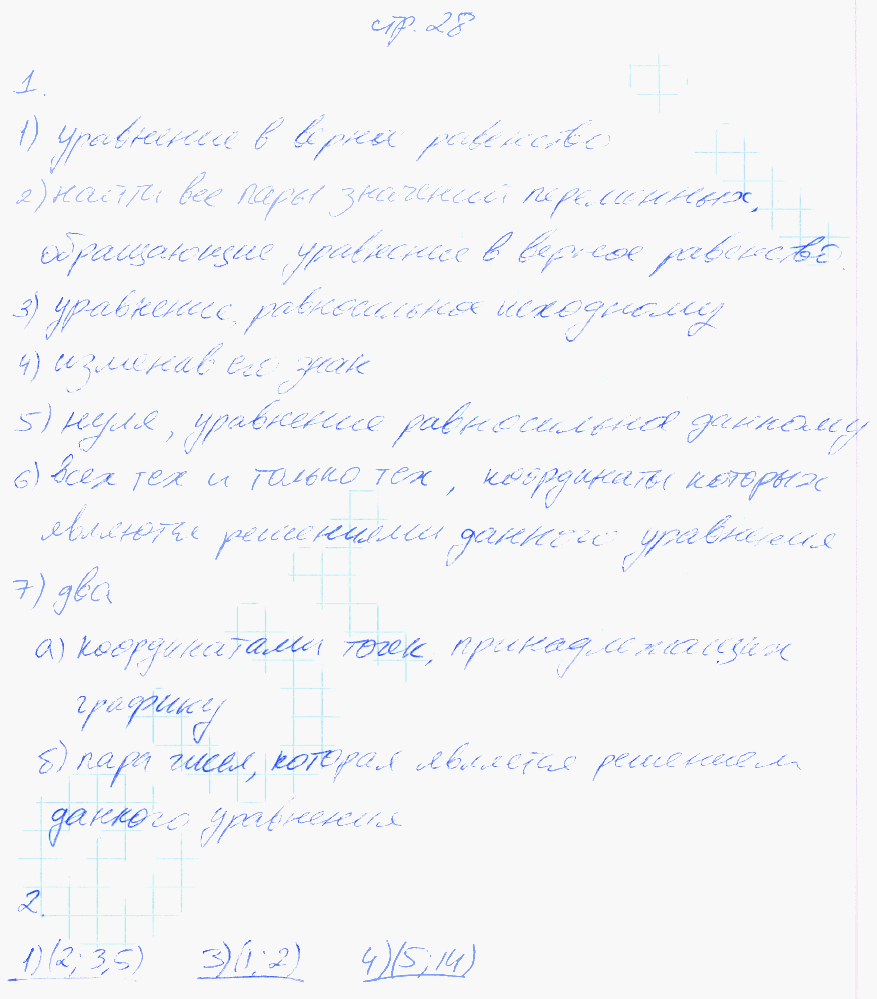 стр. 28
1.
1) уравнение в верное равенство
2) найти все пары значений переменных,
обращающие уравнение в верное равенство
3) уравнение, равносильное исходному
4) изменив его знак
5) нуля, уравнение равносильное данному
6) всех тех и только тех, координаты которых
являются решениями данного уравнения
7) два
а) координатами точек, принадлежащих
графику
б) пара чисел, которая является решением
данного уравнения
2.
1) (2; 3,5) 3) (1; 2) 4) (5; 14)